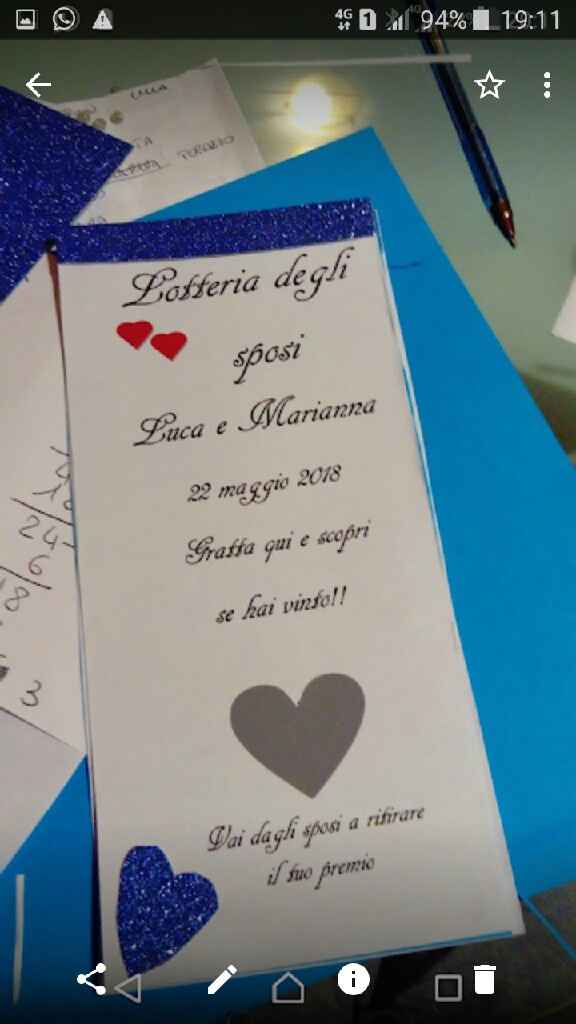 4G
1
4G
94%
19:11
PORARIO
Lotteria degli
sposi
Luca e Marianna
22 maggio 2018
Gratta qui e scopri
se hai vinto!!
Vai dagli sposi a ritirare
il tuo premio
24
6
18
3